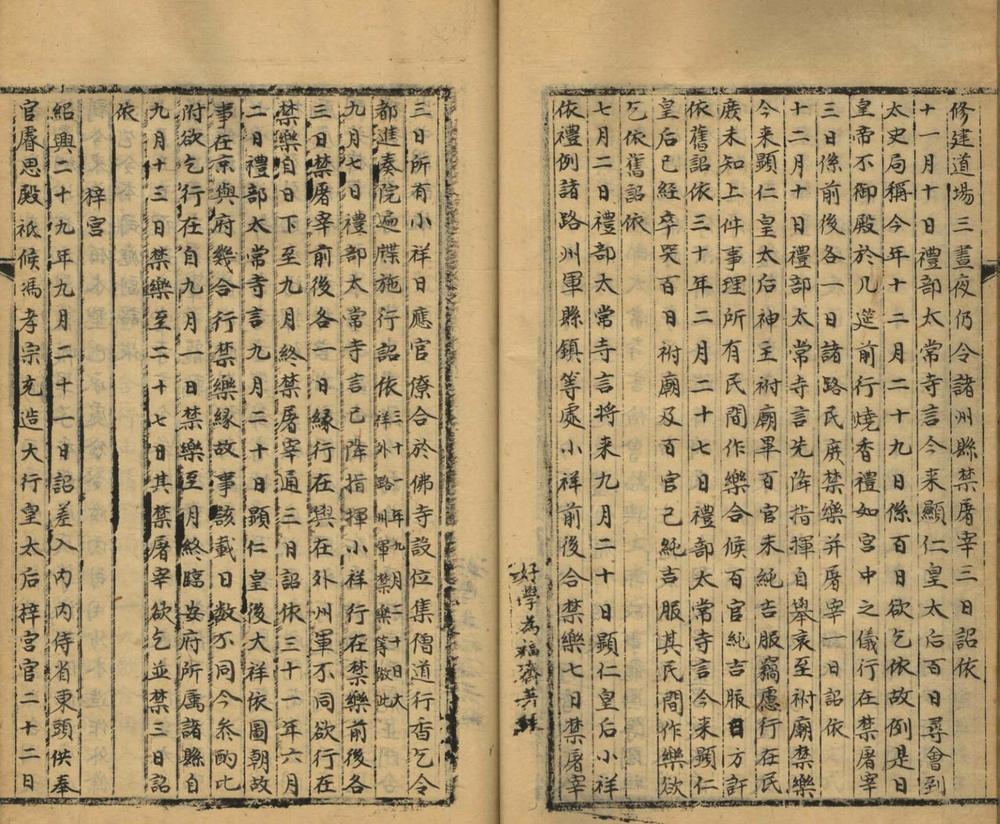 修建道場三晝夜仍令諸州縣禁屠宰三日詔依
十一月十日禮部太常寺言今来顯仁皇太后百日尋會到
太史局稱今年十二月二十九日係百日欲乞依故例是日
皇帝不御殿於几筵前行燒香禮如宮中之儀行在禁屠宰
三日係前後各一日諸路民庶禁樂并屠宰一日詔依
十二月十日禮部太常寺言先降指揮自舉哀至祔廟禁樂
今来顯仁皇太后神主祔廟畢百官未純吉服竊慮行在民
庶未知上件事理所有民間作樂合候百官純吉服日方許
依舊詔依三十年二月二十七日禮部太常寺言今来顯仁
皇后已經卒哭百日祔廟及百官已純吉服其民間作樂欲
乞依舊詔依
七月二日禮部太常寺言将来九月二十日顯仁皇后小祥
依禮例諸路州軍縣鎮等處小祥前後合禁樂七日禁屠宰
好學為福齋
三日所有小祥日應官僚合於佛寺設位集僧道行香乞令
都進奏院遍牒施行詔依三十一年九月二十日大祥外路州軍禁樂等倣此
九月七日禮部太常寺言已降指揮小祥行在禁樂前後各
三日禁屠宰前後各一日緣行在與在外州軍不同欲行在
禁樂自日下至九月終禁屠宰通三日詔依三十一年六月
二日禮部太常寺言九月二十日顯仁皇後大祥依國朝故
事在京與府幾合行禁樂緣故事該載日數不同今叅酌比
附欲乞行在自九月一日禁樂至月終臨安府所属諸縣自
九月十三日禁樂至二十七日其禁屠宰欲乞並禁三日詔
依
梓宮
紹興二十九年九月二十一日詔差入内内侍省東頭供奉
官睿思殿祗候馮孝宗充造大行皇太后梓宮官二十二日